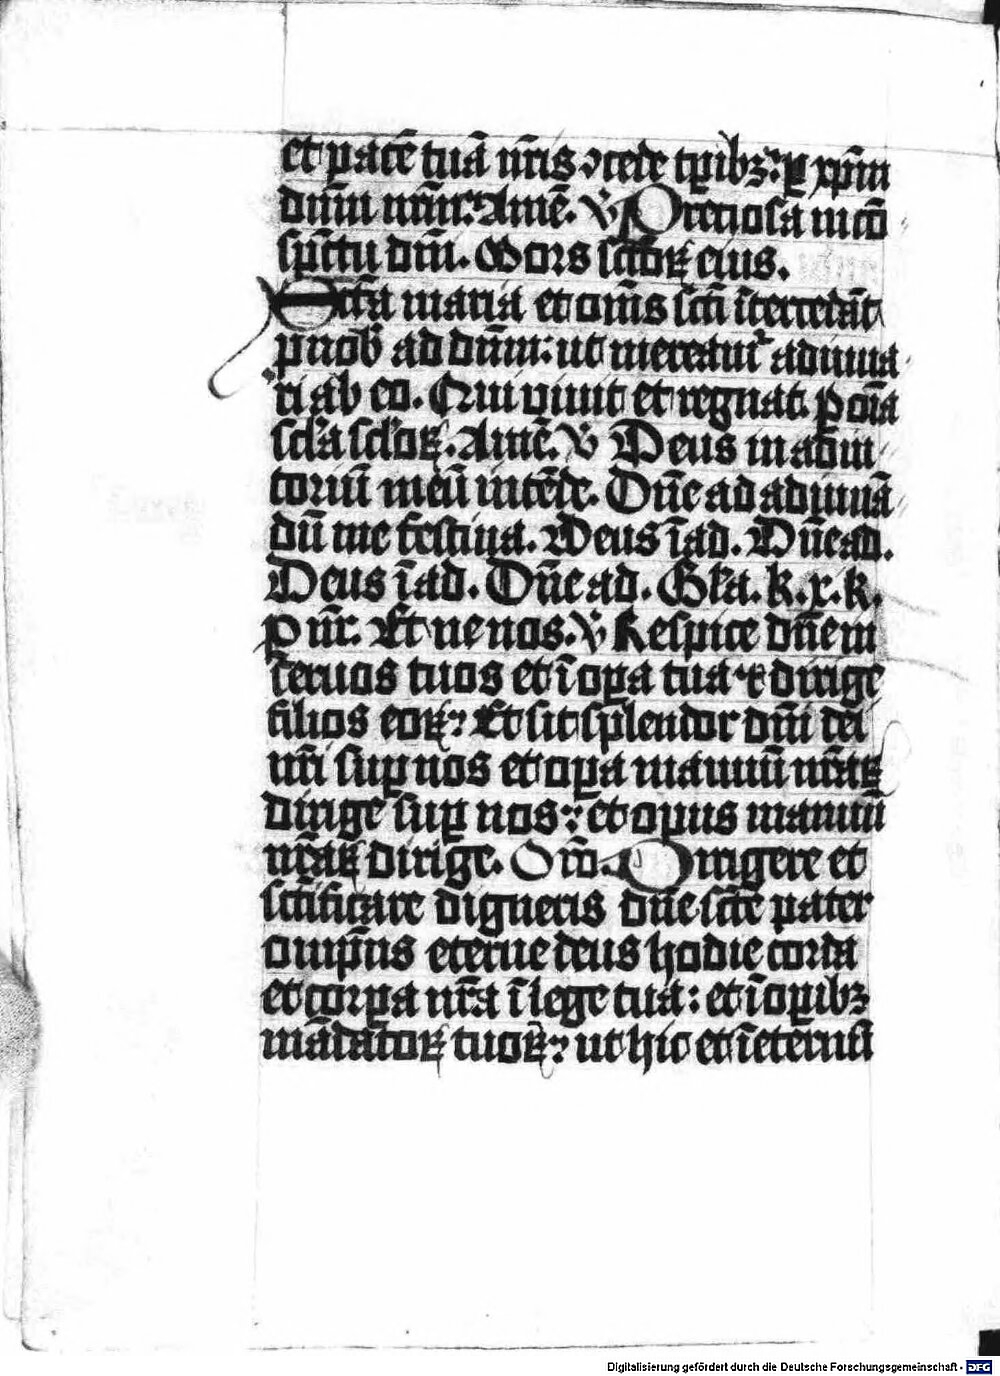 et pacē tuā nr̄is ↄcede tꝑibꝫ. ꝑ xp̄m
dn̄m nr̄m. Amē. ℣ Preciosa in cō
spc̄tu dn̄i. Mors sc̄toꝝ eius.
Sc̄tā maria et om̄s sc̄ti ītercedāt
ꝓ nob̄ ad dn̄m: ut mereamur adiuua
ri ab eo. Qui viuit et regnat. ꝑ om̄ia
scl̄a scl̄oꝝ. Amē. ℣ Deus in adiu
toriū meū intēde. Dn̄e ad adiuuā
dū me festina. Deus ī ad. Dn̄e ad.
Deus ī ad. Dn̄e ad. Gl̄a. k. x. k.
P nr̄. Et ne nos. ℣ Respice dn̄e in
seruos tuos et ī oꝑa tua ⁊ dirige
filios eoꝝ: Et sit splendor dn̄i dei
nr̄i suꝑ nos et oꝑa manuū nr̄aꝝ
dirige suꝑ nos: et opus manuū
nr̄aꝝ dirige. Or̄o. Dirigere et
sc̄tificare digneris dn̄e sc̄te pater
omp̄ns eterne deus hodie corda
et corꝑa nr̄a ī lege tua: et ī oꝑibꝫ
mādatoꝝ tuoꝝ: ut hic et ī eternū
Digitalisierung gefördert durch die Deutsche Forschungsgemeinschaft - DFG